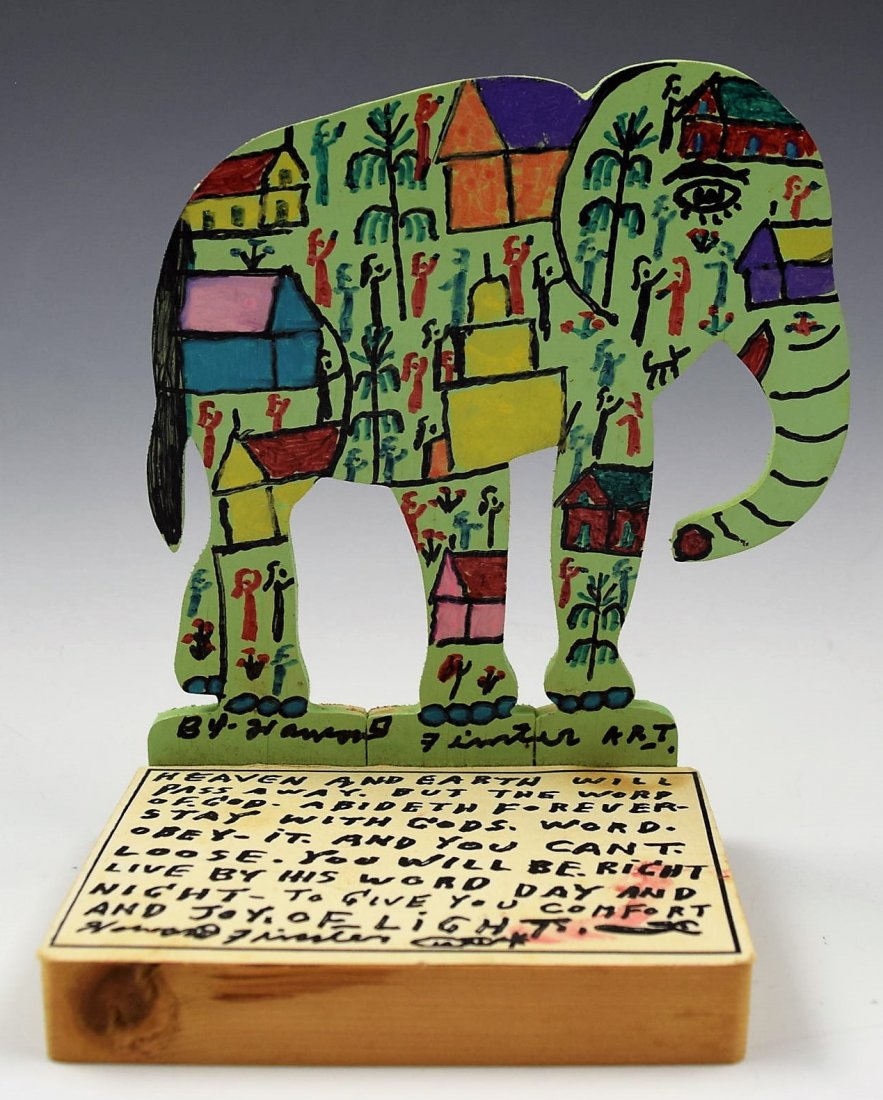 BY-Howard Finster ART.
HEAVEN AND EARTH WILL
PASS AWAY. BUT THE WORD
OF.GOD. ABIDETH FOREVER-
STAY WITH GODS. WORD.
OBEY- IT. AND YOU CANT.
LOOSE. YOU WILL BE. RIGHT
LIVE BY HIS WORD DAY AND
NIGHT- TO GIVE YOU COMFORT
AND JOY. OF LIGHTS.
Howard Finster